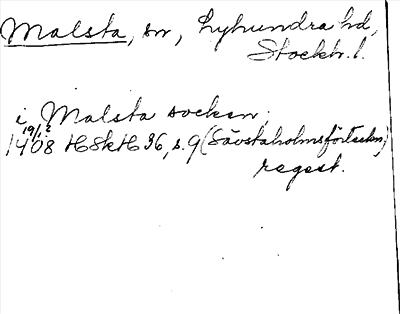 Malsta, sn, Lyhundra hd,
Stockh. l.
i Malsta socken,
19/12
1408 HSkH 36, s. 9 (Sävstaholmsförteckn,)
regest.